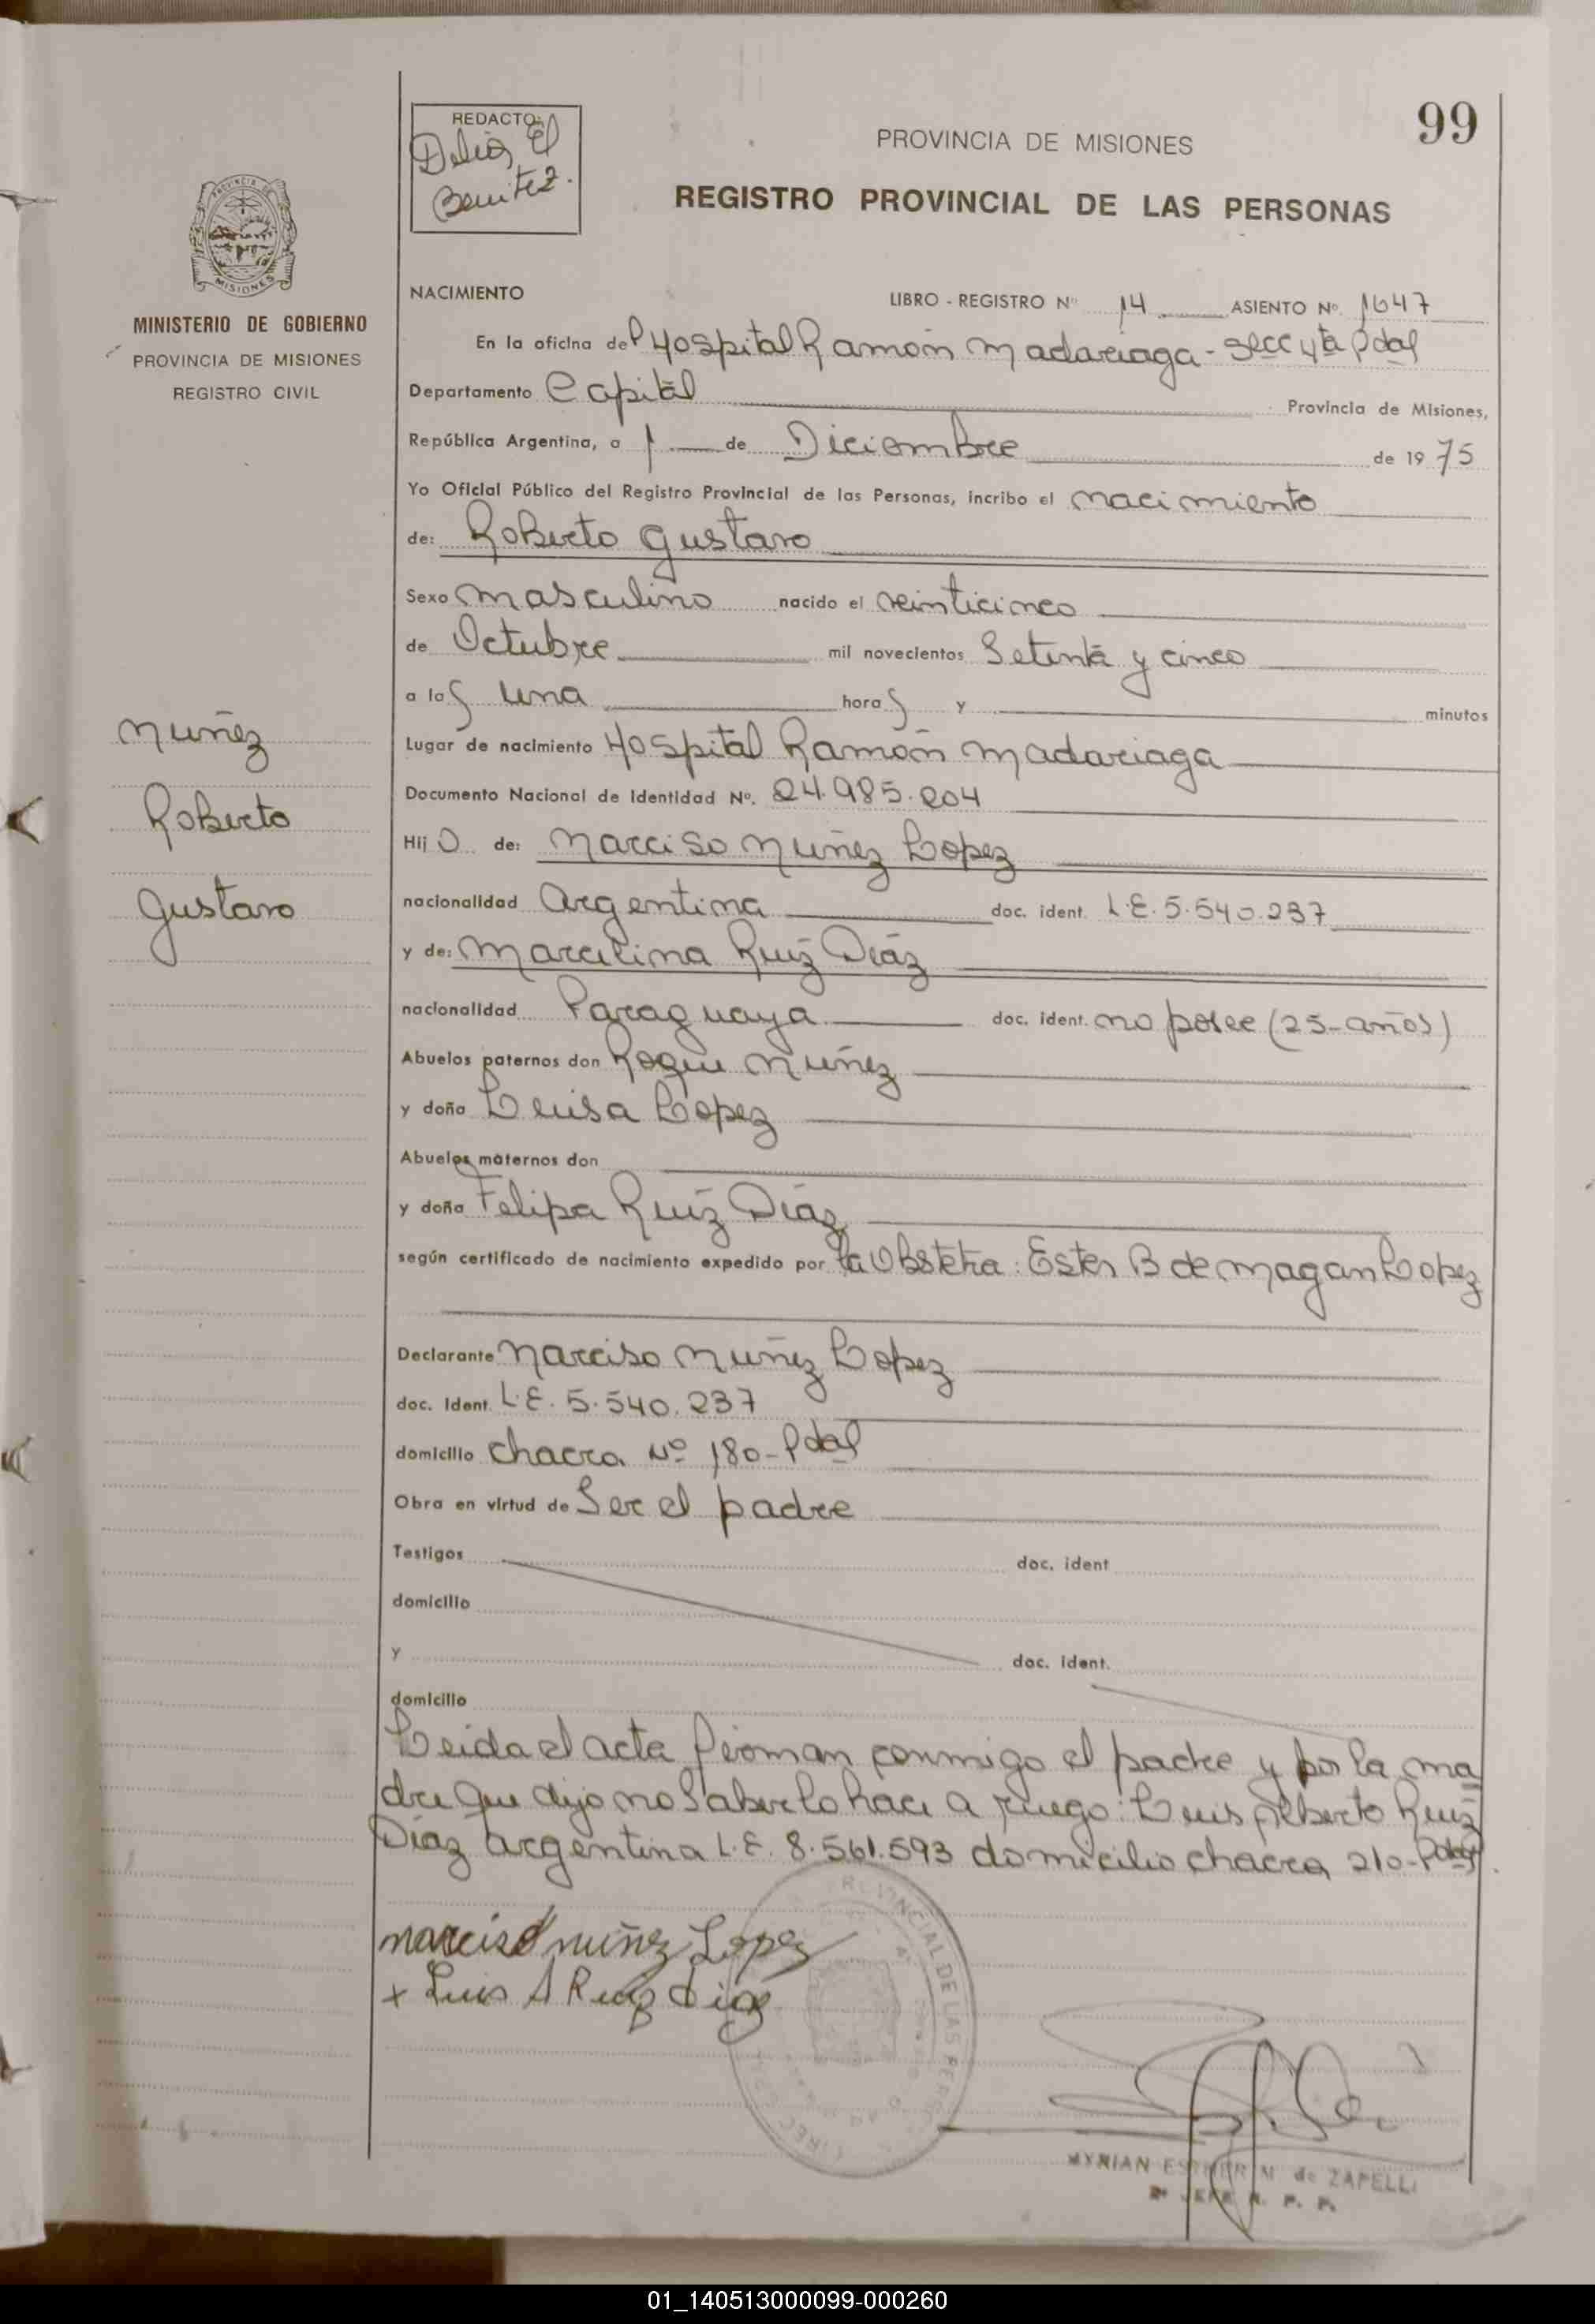 REDACTO:
Delia El
Benitez.
99
PROVINCIA DE MISIONES
REGISTRO PROVINCIAL DE LAS PERSONAS
MISIONES
MINISTERIO DE GOBIERNO
PROVINCIA DE MISIONES
REGISTRO CIVIL
NACIMIENTO
LIBRO - REGISTRO Nº 14 ASIENTO Nº 1647
En la oficina del Hospital Ramón Madariaga - Secc 4ta Pdas
Departamento Capital Provincia de Misiones,
República Argentina, a 1 de Diciembre de 1975
Yo Oficial Público del Registro Provincial de las Personas, incribo el nacimiento
de: Roberto Gustavo
Sexo masculino nacido el veinticinco
de Octubre mil novecientos Setenta y cinco
a las una horas y minutos
Muñez
Lugar de nacimiento Hospital Ramón Madariaga
Documento Nacional de Identidad Nº. 24.985.204
Roberto
Hijo de: Narciso Muñez Lopez
Gustavo
nacionalidad Argentina doc. ident. L.E. 5.540.237
y de: Marcelina Ruiz Díaz
nacionalidad Paraguaya doc. ident. no posee (25-años)
Abuelos paternos don Roque Muñez
y doña Luisa Lopez
Abuelos maternos don
y doña Felipa Ruíz Díaz
según certificado de nacimiento expedido por la Obstetra: Ester B de Magan Lopez
Declarante Narciso Muñez Lopez
doc. Ident. L.E. 5.540.237
domicilio chacra Nº 180-Pdas
Obra en virtud de Ser el padre
Testigos doc. ident
domicilio
y doc. ident.
domicilio
Leida el acta firman conmigo el padre y por la ma
dre que dijo no Saberlo hace a ruego: Luis Alberto Ruiz
Díaz argentina L.E. 8.561.593 domicilio chacra 210-Pdas.
narciso nuñez Lopez
x Luis A Ruiz diaz
PROVINCIAL DE LAS PERSO
MYRIAN ESTHER M de ZAPELLI
2º JEFE R. P. P.
01_140513000099-000260